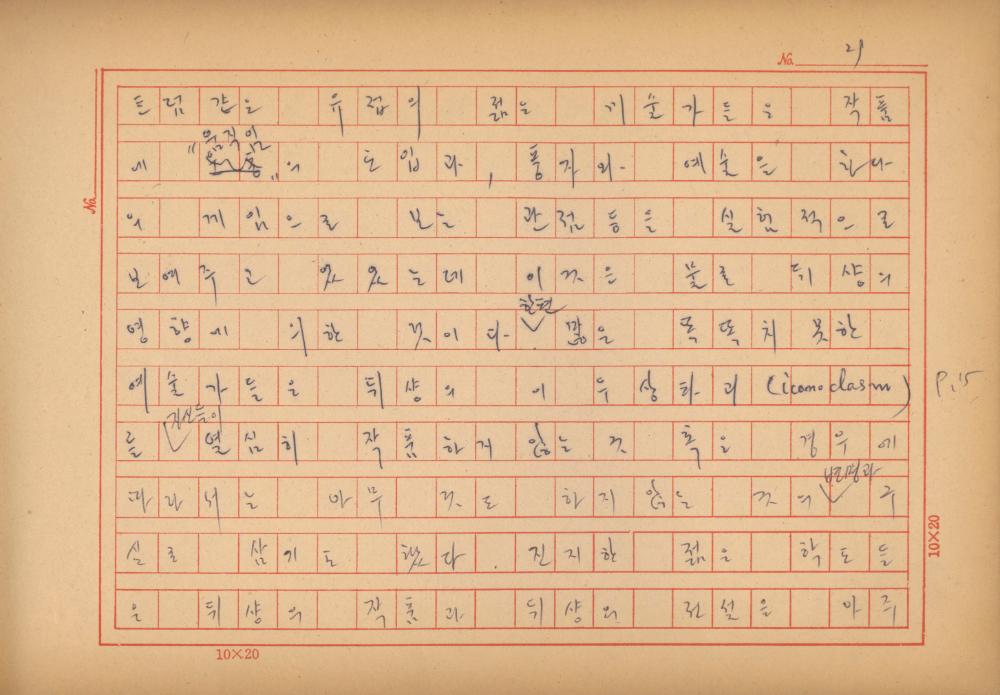 No. 21
트럼 같은 유접의 젊은 기술가들은 작품
"움직임
에 "의 도입과, 풍자와 예술을 하나
의 게임으로 보는 관점 등을 실험적으로
보여주고 있있는데 이것은 물론 뒤샹의
한편
영향에 의한 것이다. 많은 똑똑치 못한
예술가들은 뒤샹의 이 우상화괴 (iconoclasm) P. 15
자신들이
를 열심히 작품하지 않는 것 혹은 경우에
변명과
따라서는 아무 것도 하지 않는 것의 구
실로 삼기도 했다. 진지한 젊은 학도들
은 뒤샹의 작품과 뒤샹의 전설을 아주
No.
10×20
10×20